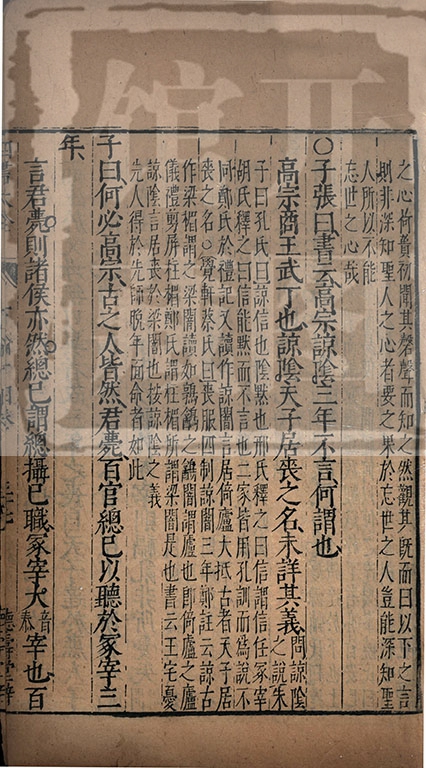 之心荷蕢初聞其磬聲而知之然觀其既而曰以下之言
則非深知聖人之心者要之果於忘世之人豈能深知聖
人所以不能
忘世之心哉
○子張曰書云高宗諒陰三年不言何謂也
高宗商王武丁也諒陰天子居喪之名未詳其義
問諒陰
之說朱
子曰孔氏曰諒信也陰默也邢氏釋之曰信謂信任冢宰
胡氏釋之曰信能默而不言也二家皆用孔訓而為說不
同鄭氏於禮記又讀作諒闇言居倚廬大抵古者天子居
喪之名○覺軒蔡氏曰喪服四制諒闇三年鄭註云諒古
作梁楣謂之梁闇讀如鶉鷃之鷃闇謂廬也即倚廬之廬
儀禮剪屏柱楣鄭氏謂柱楣所謂梁闇是也書云王宅憂
諒陰言居喪於梁闇也按諒陰之義
先人得於先師晚年面命者如此
子曰何必高宗古之人皆然君薨百官總己以聽於冢宰三
年
言君薨則諸侯亦然總己謂總攝己職冢宰大
音
泰
宰也百